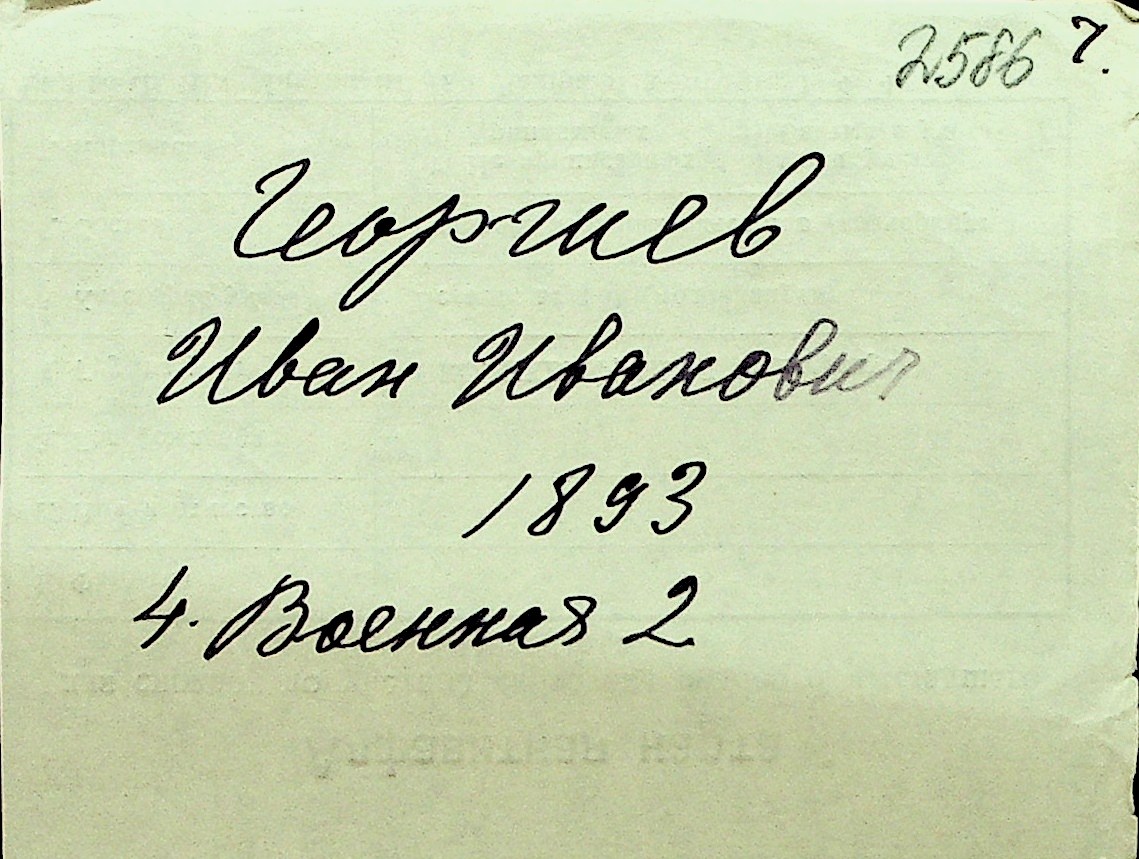 2586 ч.
Георгиев
Иван Иванович
1893
4. Военная 2